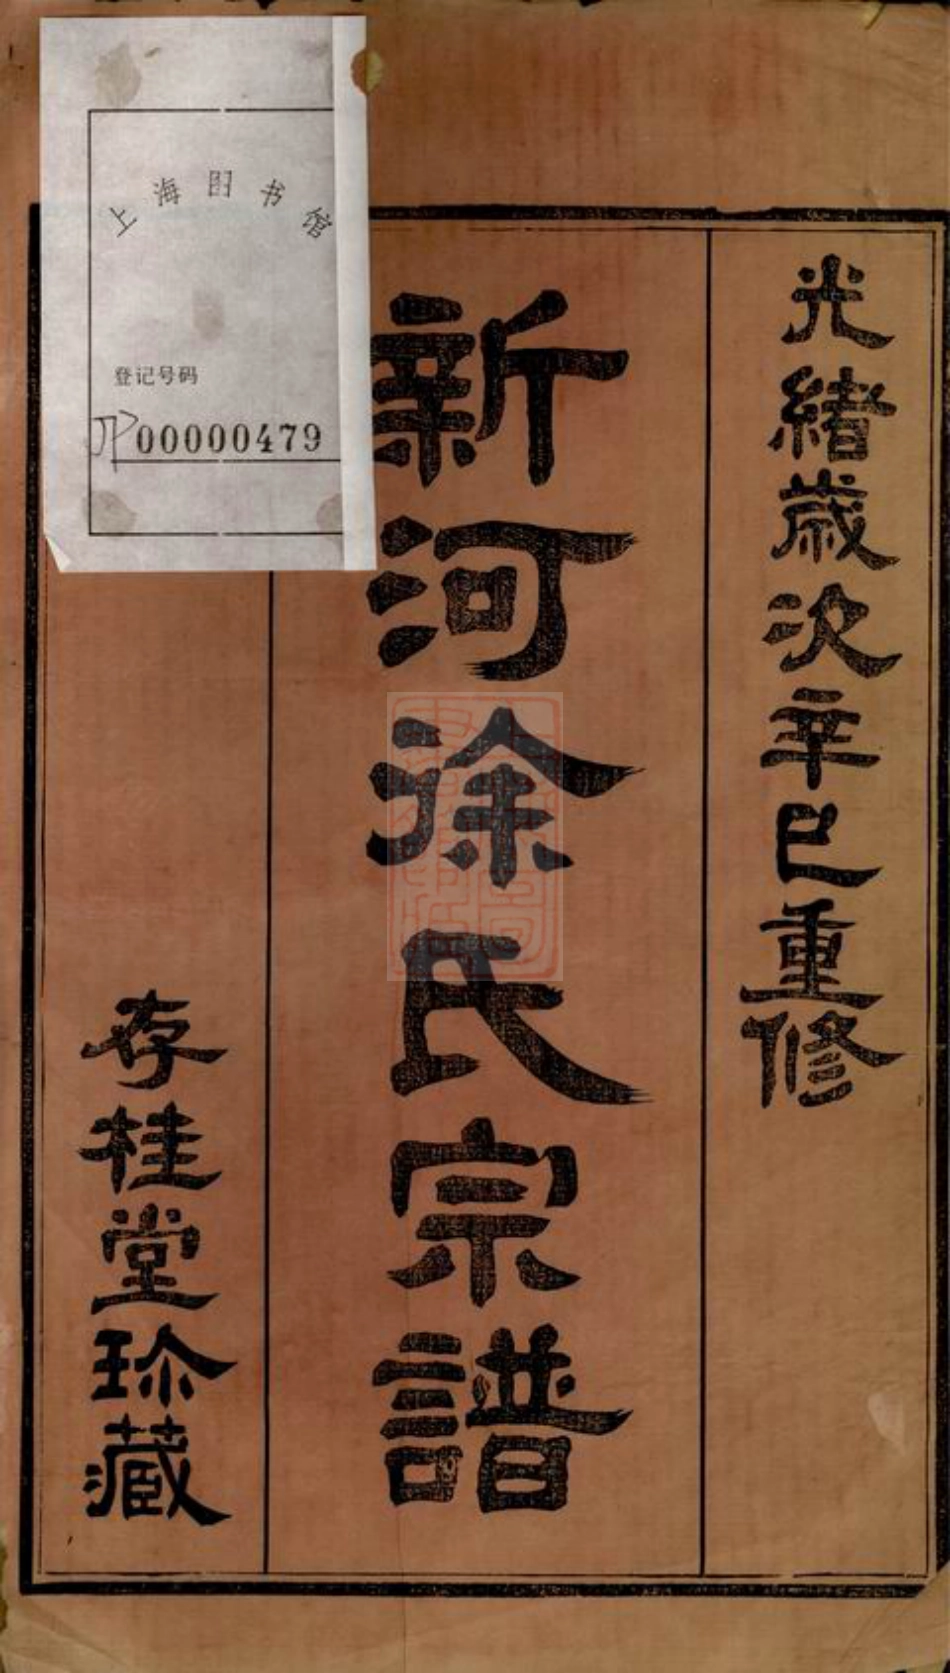 光緒歲次辛巳重修
新河徐氏宗譜
存桂堂珍藏
上海图书馆
登记号码
00000479